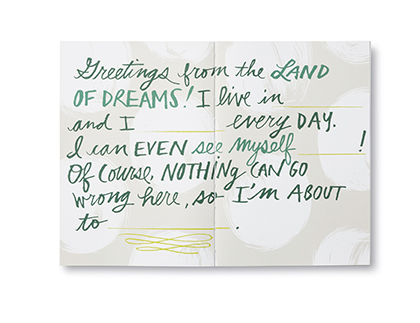 Greetings from the LAND
OF DREAMS! I live in
and I every DAY.
I can EVEN see myself !
Of Course, NOTHING CAN GO
wrong here, so I'm ABOUT
to .